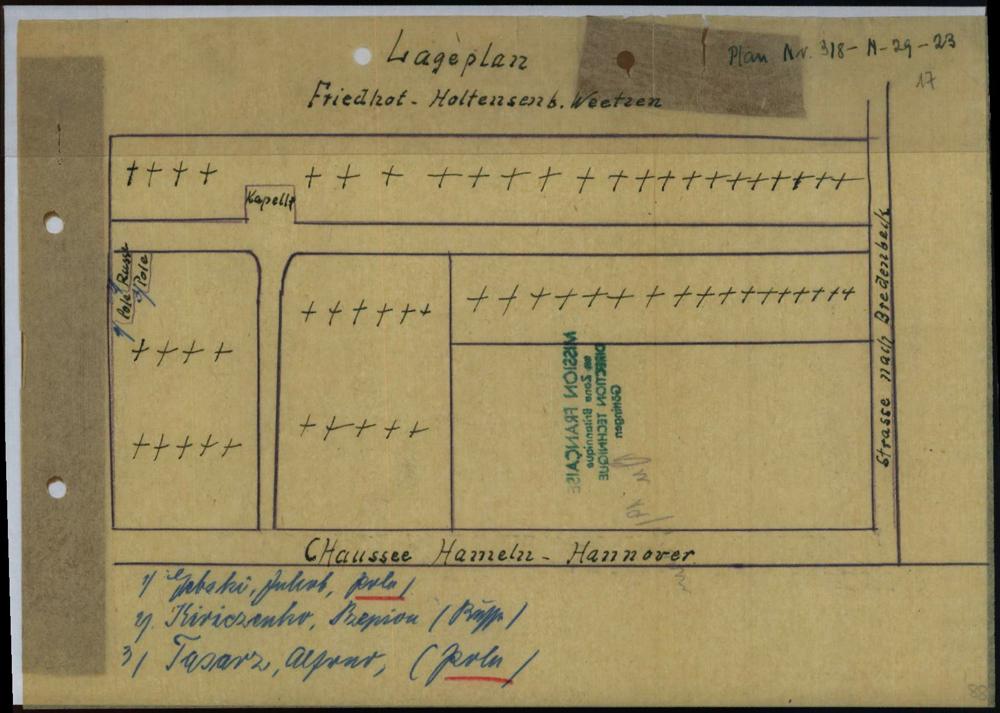 Lageplan
Plan Nr. 318-N-29-23
17
Friedhof - Holtensen b. Weetzen
Kapelle
1/ Pole
Russe
3/ Pole
Strasse nach Bredenbeck
MISSION FRANÇAISE
DIRECTION TECHNIQUE
en Zone Britannique
Göttingen
CHaussee Hameln - Hannover
1/ Jakob, Pole/
2/. Kiriczenko, (Russe/
3/ Tasarz, Alfons, (Pole/
88